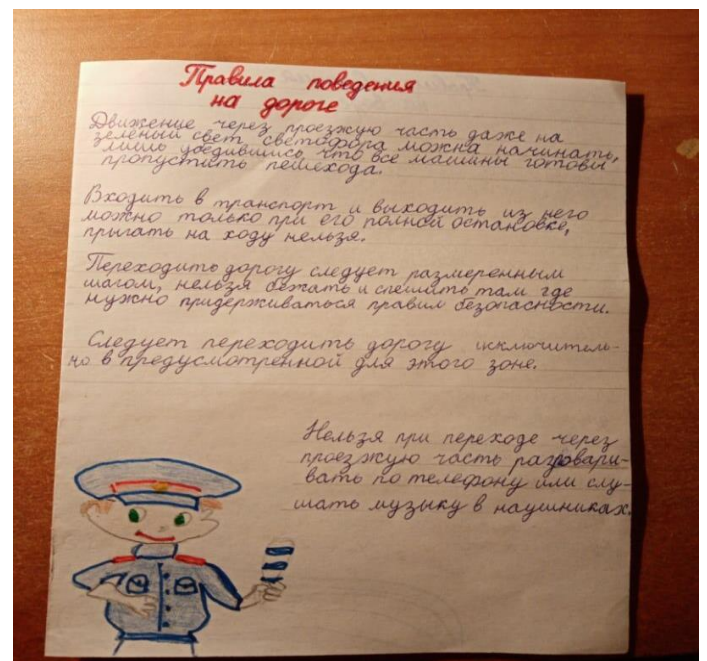 Правила поведения
на дороге
Движение через проезжую часть даже на
зеленый свет светофора можна начинать,
лишь убедившись что все машины готовы
пропустить пешехода.
Входить в транспорт и выходить из него
можно только при его полной остановке,
прыгать на ходу нельзя.
Переходить дорогу следует размеренным
шагом, нельзя бежать и спешить там где
нужно придерживаться правил безопасности.
Следует переходить дорогу исключитель-
но в предусмотренной для этого зоне.
Нельзя при переходе через
проезжую часть разговари-
вать по телефону или слу-
шать музыку в наушниках.